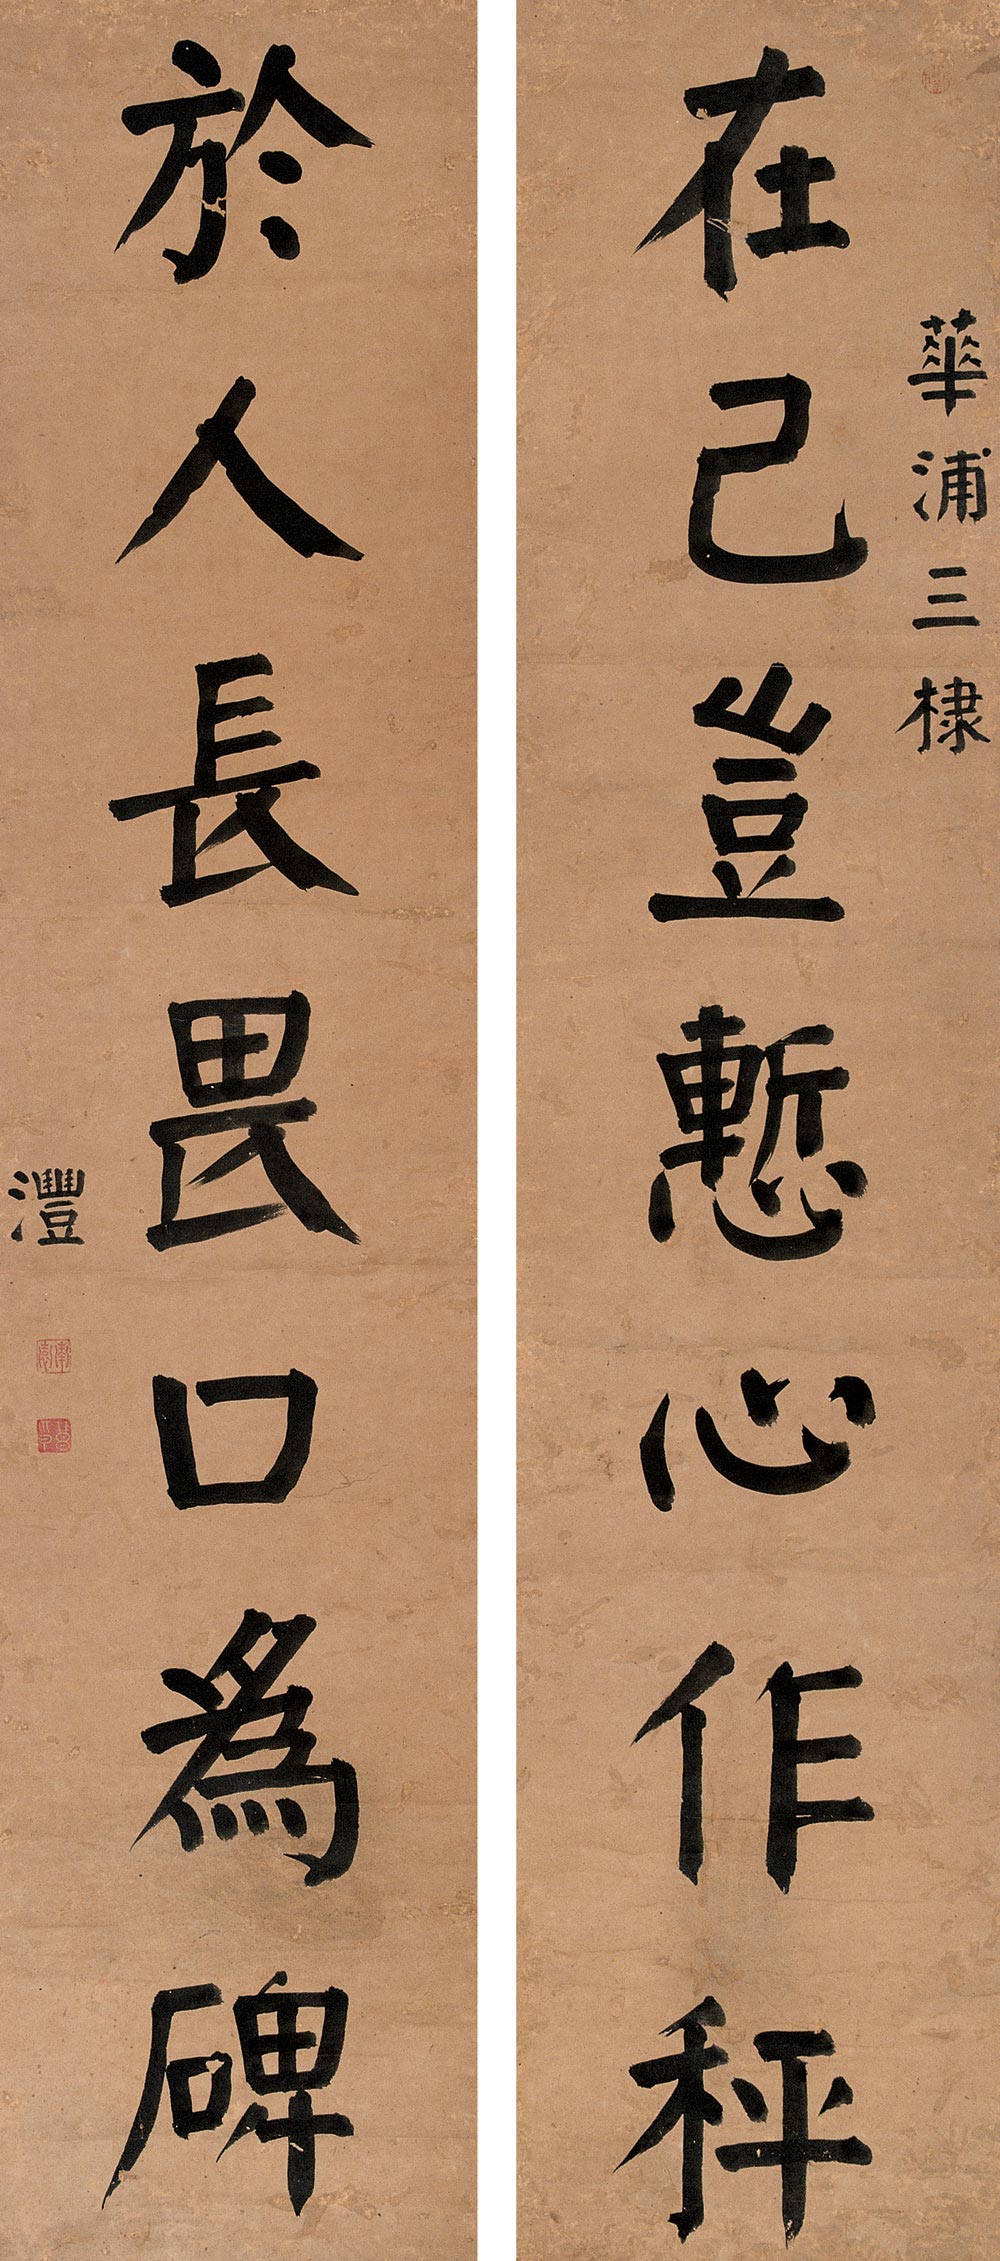 華浦三棣
在己豈慙心作秤
於人長畏口為碑
灃